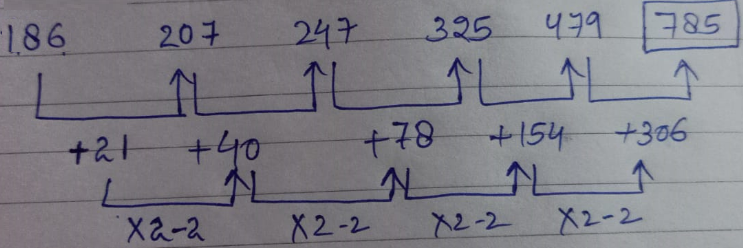 186 207 247 325 479 785
+21 +40 +78 +154 +306
×2-2 ×2-2 ×2-2 ×2-2